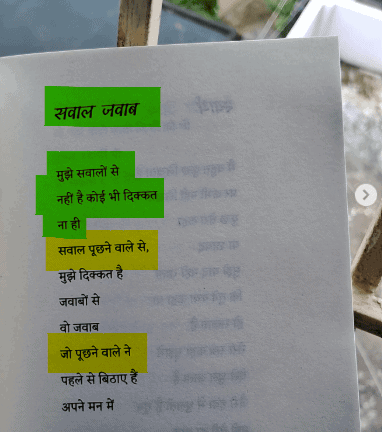 सवाल जवाब
मुझे सवालों से
नहीं है कोई भी दिक्कत
ना ही
सवाल पूछने वाले से,
मुझे दिक्कत है
जवाबों से
वो जवाब
जो पूछने वाले ने
पहले से बिठाए हैं
अपने मन में